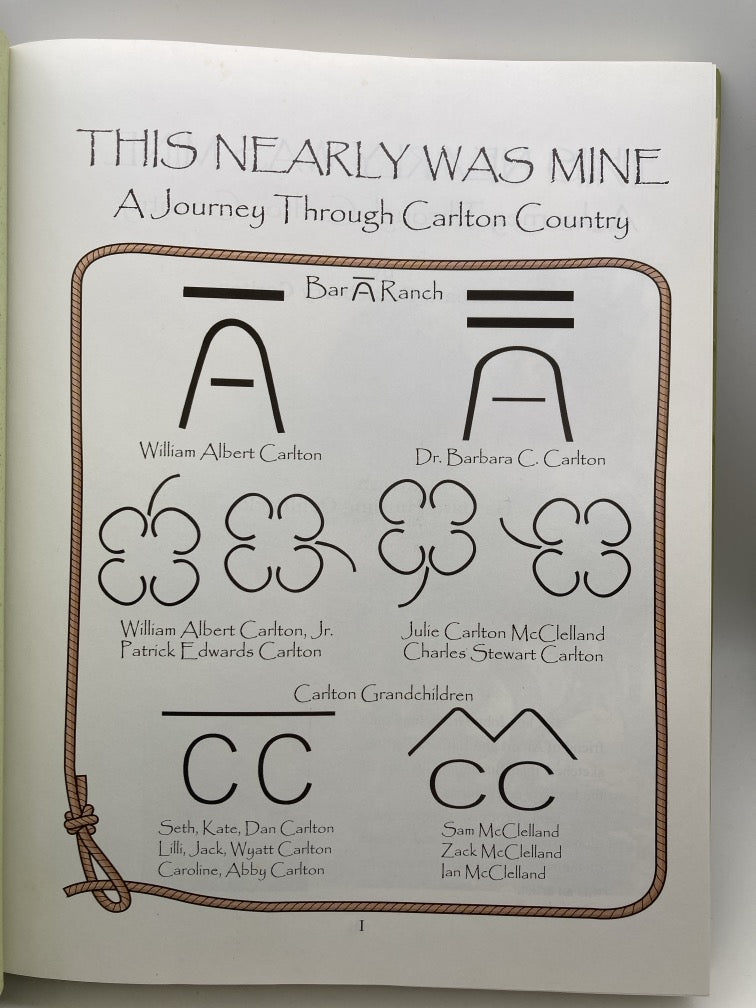 THIS NEARLY WAS MINE
A Journey Through Carlton Country
Bar A Ranch
A
A
William Albert Carlton
Dr. Barbara C. Carlton
William Albert Carlton, Jr.
Patrick Edwards Carlton
Julie Carlton McClelland
Charles Stewart Carlton
Carlton Grandchildren
CC
CC
Seth, Kate, Dan Carlton
Lilli, Jack, Wyatt Carlton
Caroline, Abby Carlton
Sam McClelland
Zack McClelland
Ian McClelland
I